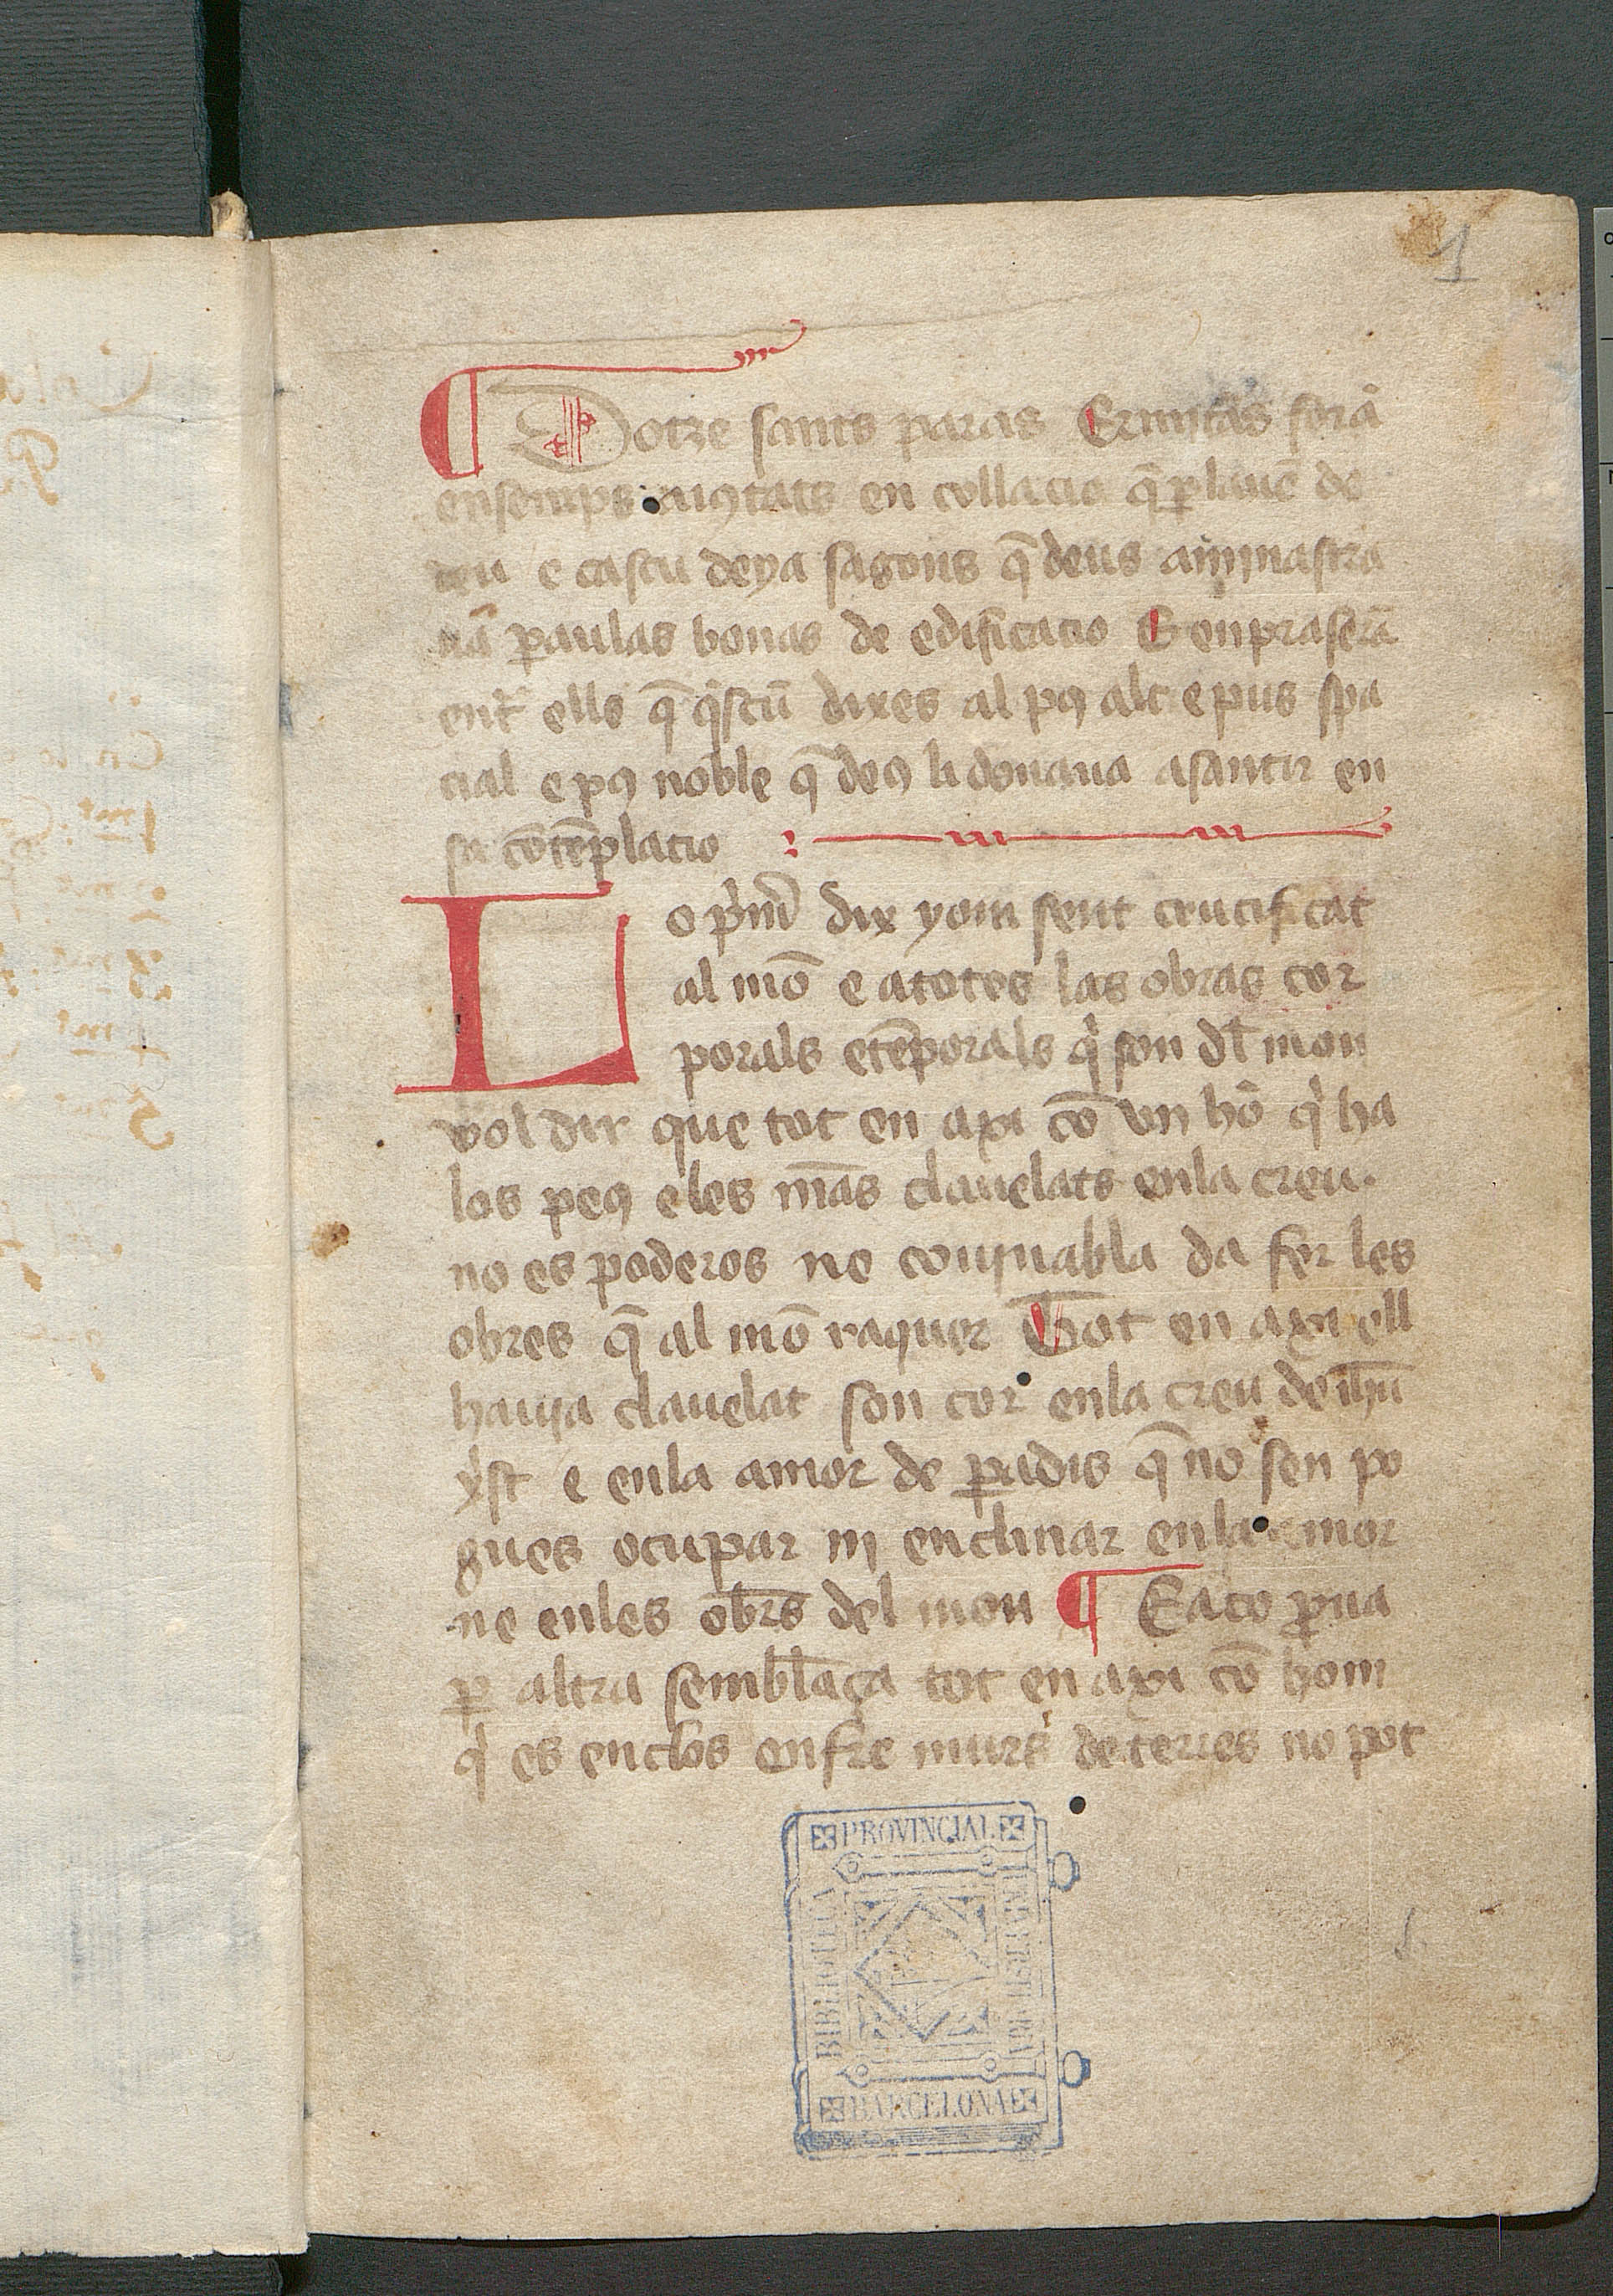 1
¶ Dotze sants paras Ermitãs forã
ensemps aiustats en collacio q̃ ꝑlauẽ de
deu e cascu deya sagons q̃ deus aminastra
uã ꝑaulas bonas de edificacio E enpraserã
entr̃ ells q̃ q̃scũ dixes al pꝰ alt e pus spa
cial e pꝰ noble q̃ deꝰ li donaua asantir en
sa cõtẽplacio
Lo pͥm̃ dix yom sent crucificat
al mõ e a totes las obras cor
porals e tẽporals qͥ son dl̃ mon
vol dir que tot en axi cõ vn hõ qͥ ha
los peꝰ e les mãs clauelats en la creu.
no es poderos ne couinabla da fer les
obres q̃ al mõ raquer Tot en axi ell
hauia clauelat son cor en la creu de ihũ
xp̃st e en la amor de ꝑadis q̃ no sen po
gues ocupar nj enclinar en la amor
ne en les obr̃s del mon ¶ E aco ꝓua
ꝑ altra semblãça tot en axi cõ hom
qͥ es enclos enfre murs de terres no pot
PROVINCIAL
BIBLIOTECA
BARCELONA